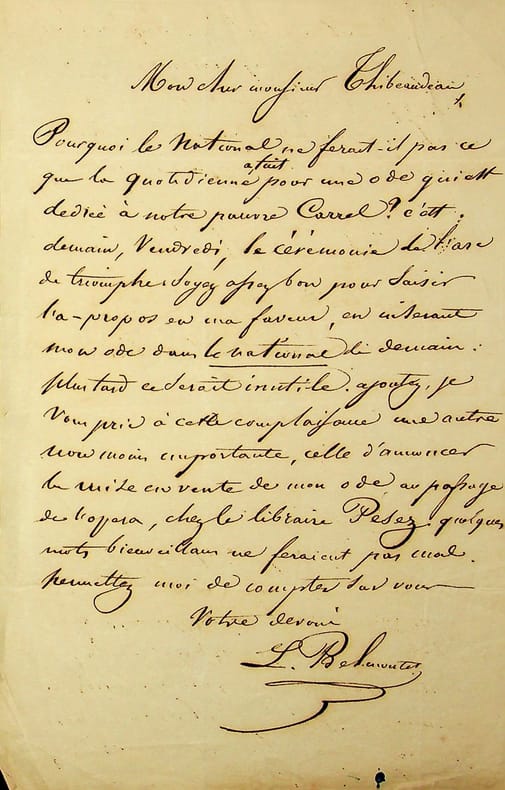 Mon cher monsieur Thibeaudeau,
Pourquoi le National ne ferait-il pas ce
a fait
que la quotidienne pour une ode qui est
dediée à notre pauvre Carrel? c'est
demain, Vendredi, la cérémonie de l'arc
de triomphe. Soyez assez bon pour saisir
l'a-propos en ma faveur, en inserant
mon ode dans le national de demain :
plus tard ce serait inutile. ajoutez, je
Vous prie à cette complaisance une autre
non moins importante, celle d'annoncer
la mise en vente de mon ode au passage
de l'opera, chez le libraire Pesez. quelques
mots bienveillans ne feraient pas mal.
permettez moi de compter sur vous
Votre devoué
L. Belmontet